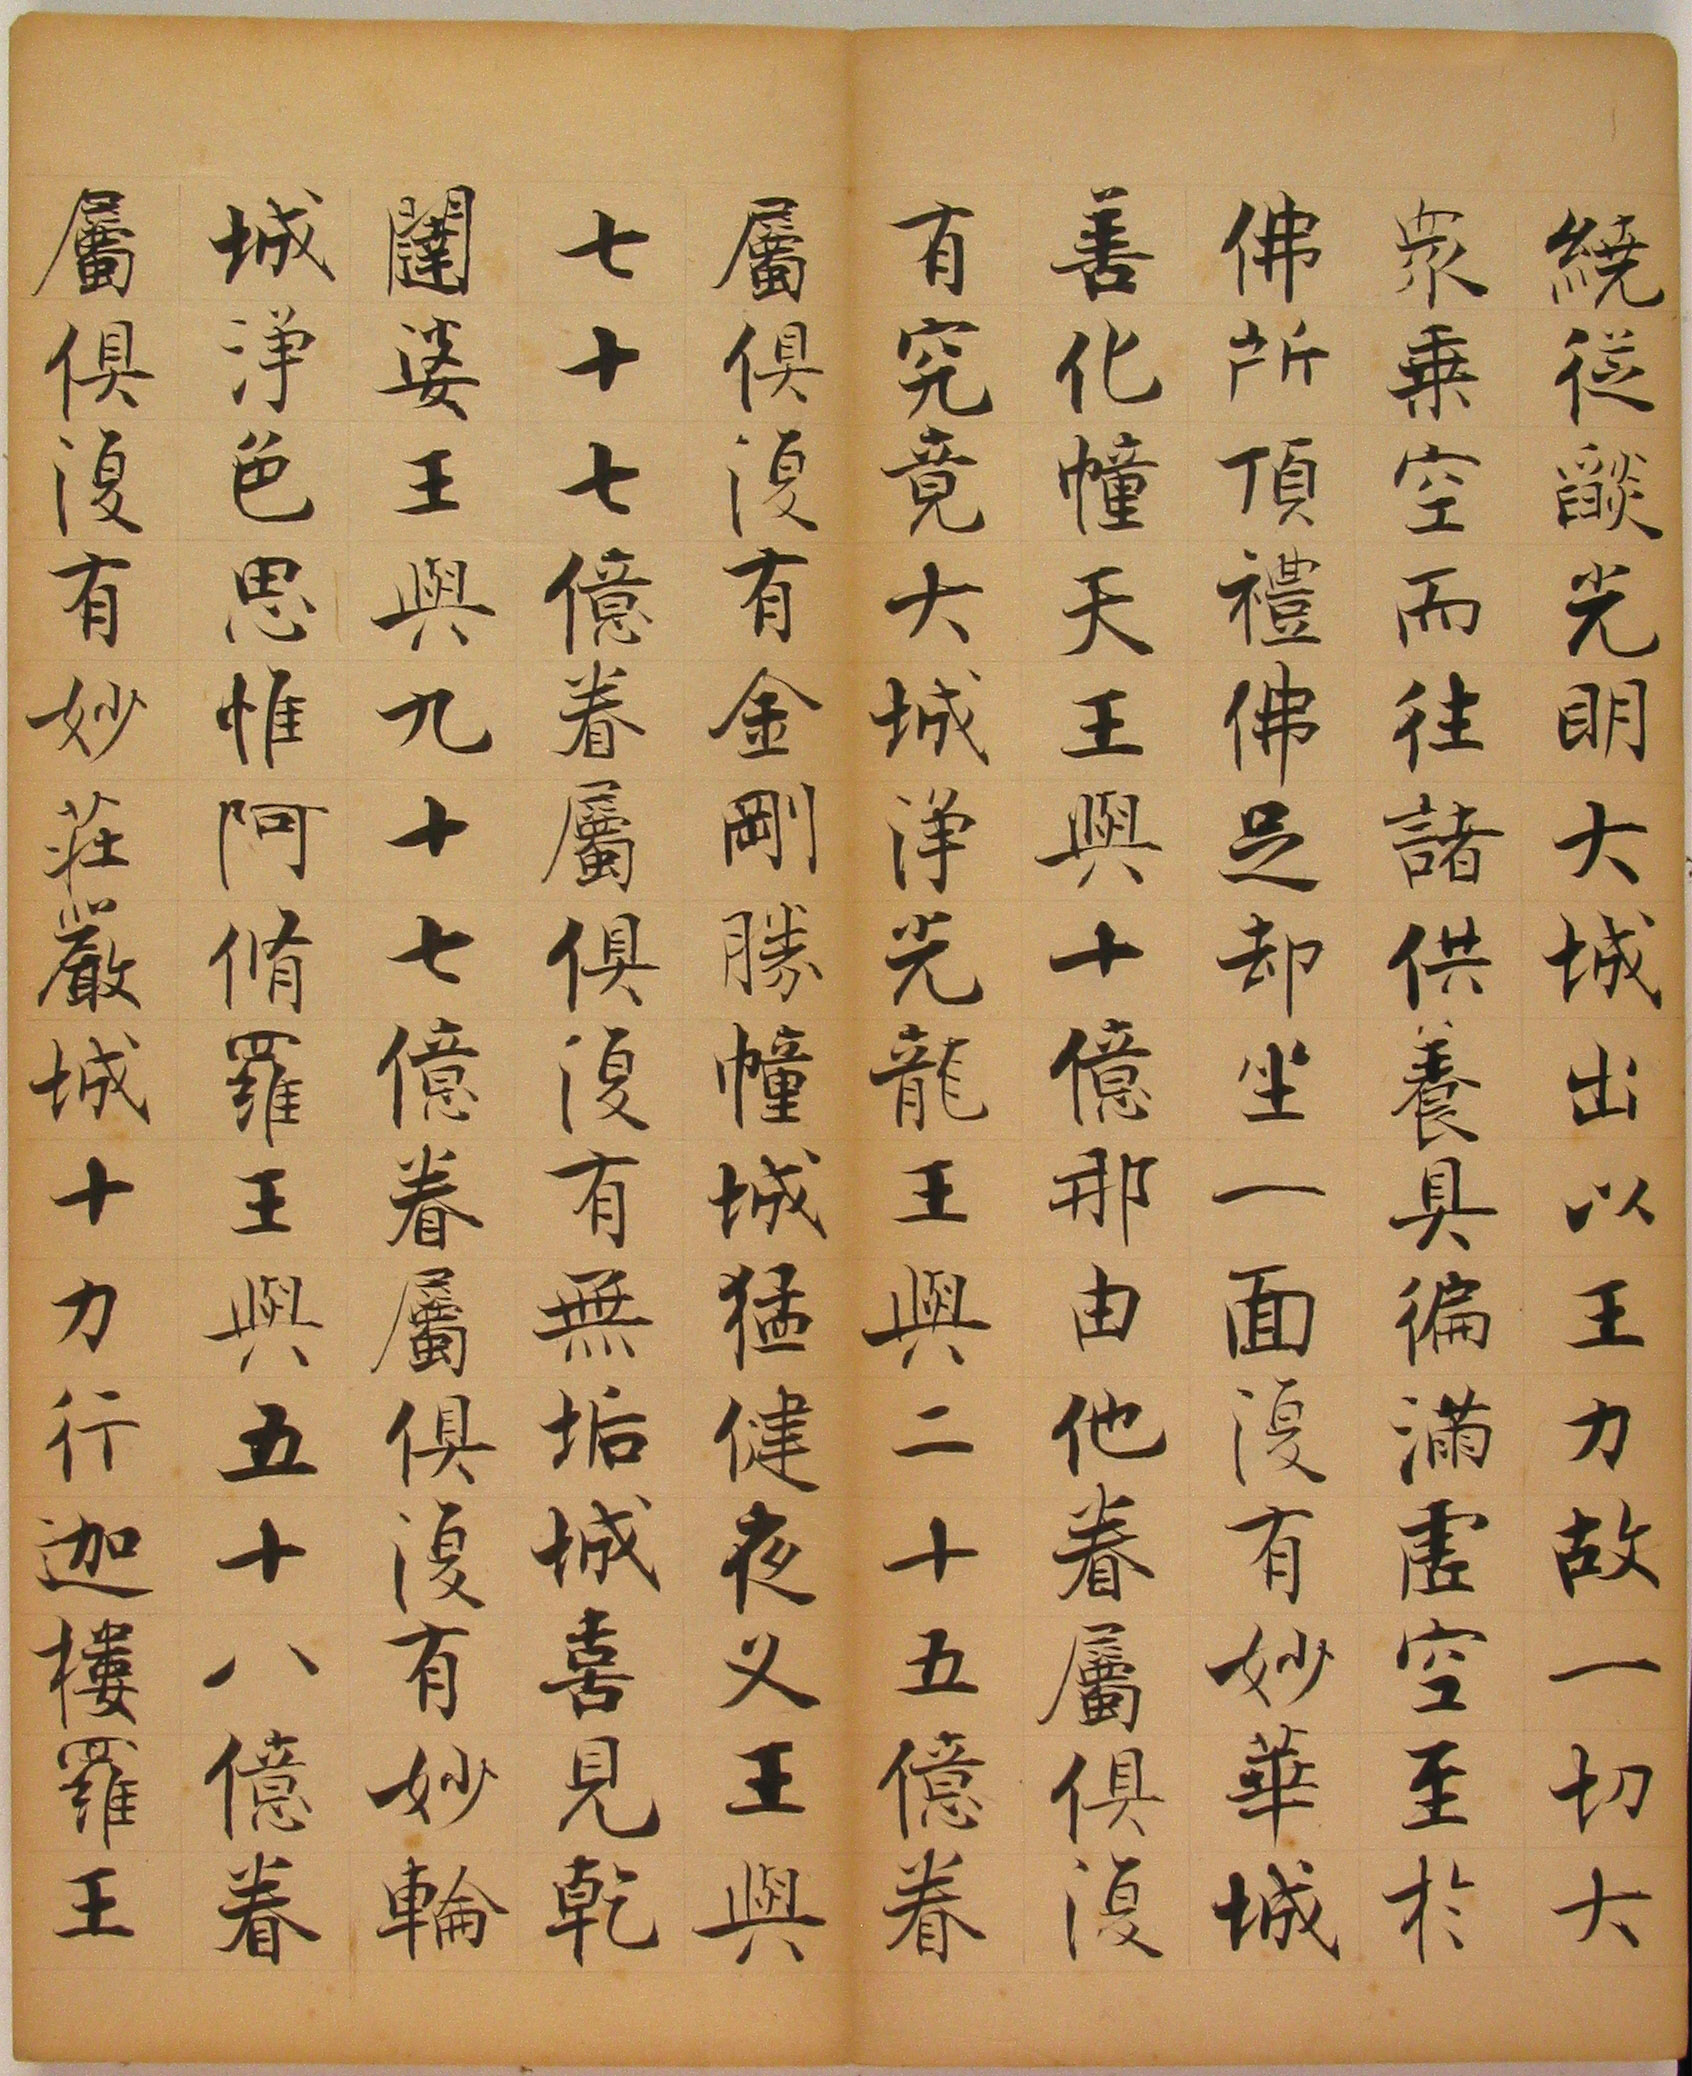 繞從燄光明大城出以王力故一切大
眾乗空而往諸供養具徧滿虛空至於
佛所頂禮佛足却坐一面復有妙華城
善化幢天王與十億那由他眷屬俱復
有究竟大城淨光龍王與二十五億眷
屬俱復有金剛勝幢城猛健夜叉王與
七十七億眷屬俱復有無垢城喜見乾
闥婆王與九十七億眷屬俱復有妙輪
城淨色思惟阿脩羅王與五十八億眷
屬俱復有妙莊嚴城十力行迦樓羅王